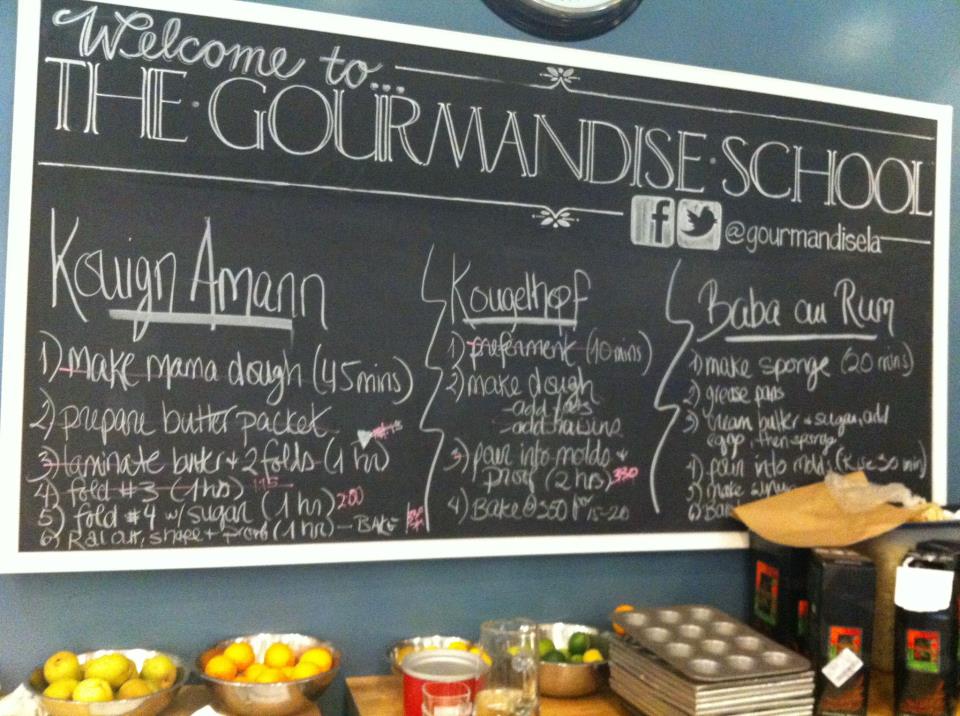 Welcome to...
THE·GOURMANDISE·SCHOOL
f @gourmandisela
Kouign Amann
1) Make mama dough (45mins)
2) prepare butter packet
3) laminate butter + 2 folds (1 hr)
4) fold #3 (1 hr) 1:15
5) fold #4 w/ sugar (1 hr) 2:00
6) Roll out, shape + proof (1 hr) - BAKE
Kougelhopf
1) preferment (10 mins)
2) make dough
- add
- add raisins
3) pour into molds +
proof (2 hrs) 330
4) Bake @ 350 for 15-20
Baba au Rum
1) make sponge (20 mins)
2) grease pans
3) cream butter + sugar, add
eggs, then sponge
4) pour into molds (Rise 30 min)
5) make
6)